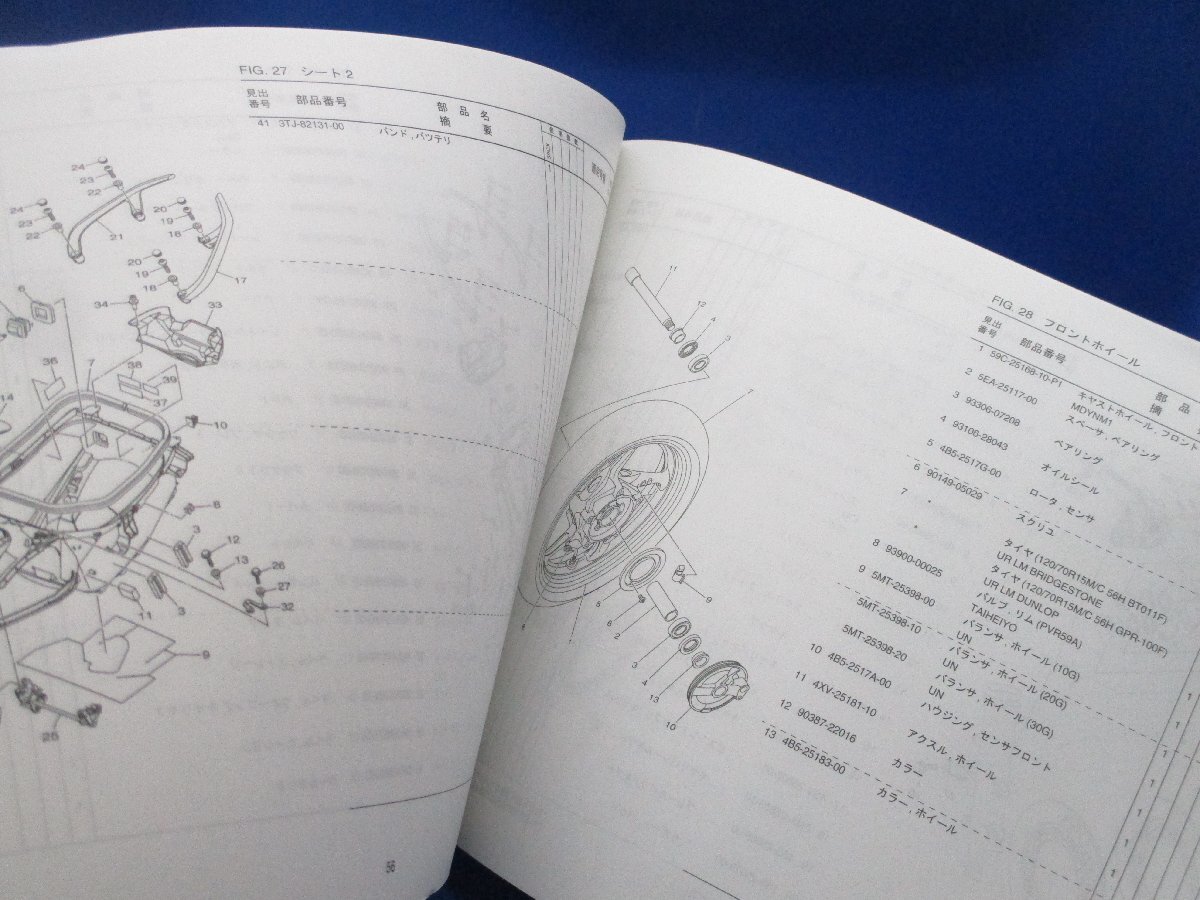 FIG. 27 シート 2
見出
番号 部品番号 部 品 名
摘 要
41 3TJ-82131-00 バンド , バツテリ
24
23
22
24
23
22
21
20
19
18
20
19
18
17
34
33
6
7
36
38
39
37
14
10
8
3
12
13
26
27
32
3
11
9
25
56
11
12
4
3
7
5
9
6
2
3
4
13
10
1
FIG. 28 フロントホイール
見出
番号 部品番号 部 品
摘
1 59C-25168-10-P1 キヤストホイール , フロント
MDYNM1
2 5EA-25117-00 スペーサ , ベアリング
3 93306-07208 ベアリング
4 93106-28043 オイルシール
5 4B5-2517G-00 ロータ , センサ
6 90149-05029 スクリユ
7 * タイヤ (120/70R15M/C 56H BT011F)
UR LM BRIDGESTONE
* タイヤ (120/70R15M/C 56H GPR-100F)
UR LM DUNLOP
8 93900-00025 バルブ , リム (PVR59A)
TAIHEIYO
9 5MT-25398-00 バランサ , ホイール (10G)
UN
5MT-25398-10 バランサ , ホイール (20G)
UN
5MT-25398-20 バランサ , ホイール (30G)
UN
10 4B5-2517A-00 ハウジング , センサフロント
11 4XV-25181-10 アクスル , ホイール
12 90387-22016 カラー
13 4B5-25183-00 カラー , ホイール
1
1
1
1
1
1